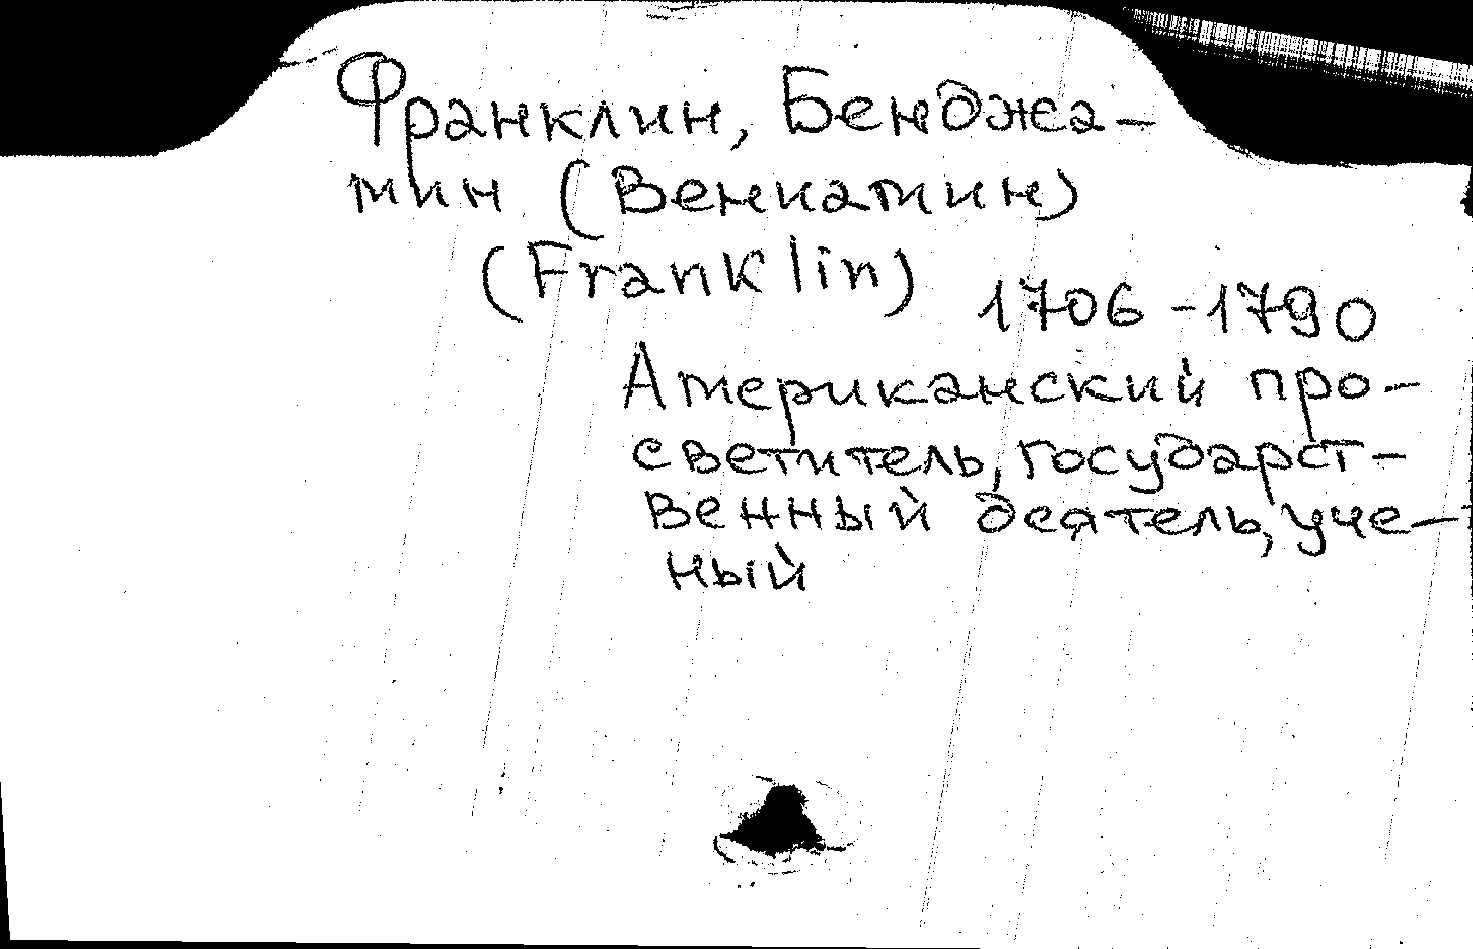 Франклин, Бенджа-
мин (Вениамин)
(Franklin)
1706-1790
Американский про-
светитель, государст-
венный деятель, уче-
ный